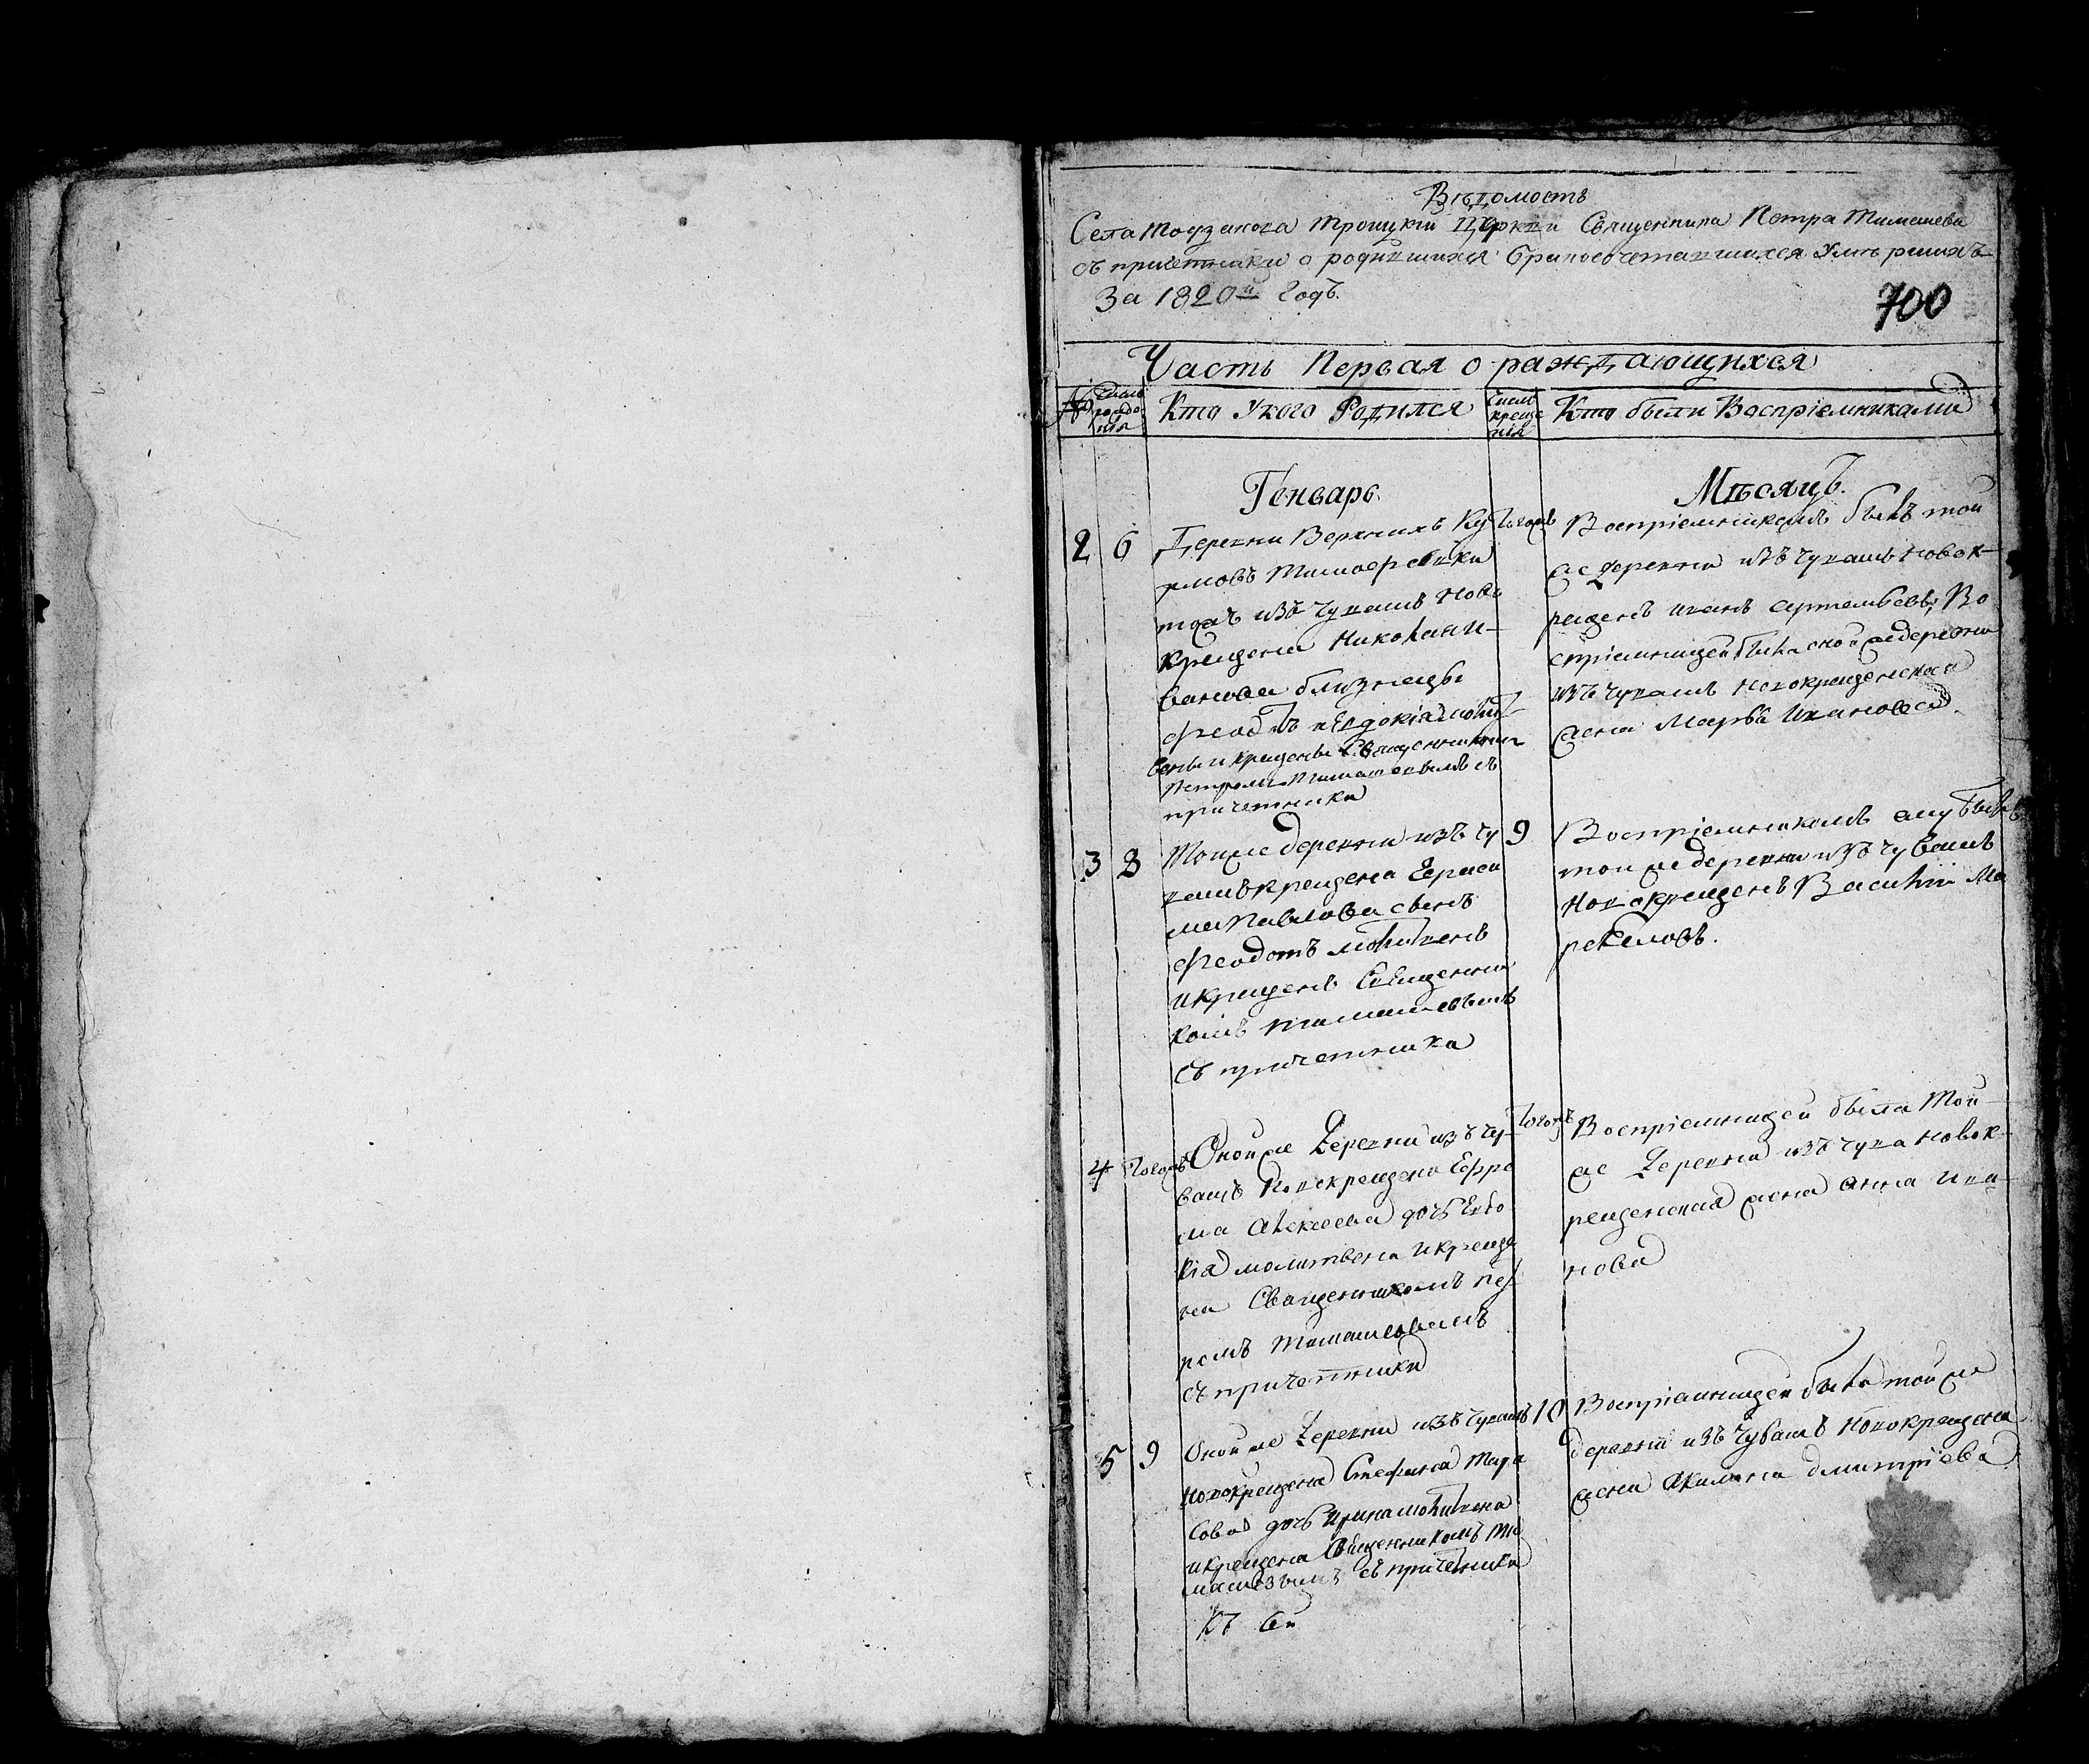 Вѣдомость
Села Тоузакова Троицкiй Церкви Священника Петра Тимашева
съ причетники о родившихся бракосочетавшихся умѣршихъ
За 1820й годъ.
700
Часть Первая о раждающихся
№ Число рожде нiя Кто Укого Родился Число креще нiя Кто были Воспрiемниками
Генварь. Мѣсяцъ.
2 6 Деревни Верхнихъ Ку
изъ чувашъ Ново
крещена Николая И
ванова близнецы
Феодоръ и Евдокiя молит
вены и крещены Священникомъ
Петромъ Тимашевымъ съ
причетники
Тогожъ Воспрiемникомъ былъ той
же деревни изъ чувашъ новок
рещенъ Иванъ Артемьевъ, Во
спрiемницей была оной же деревни
изъ чувашъ новокрещенская
жена Марѳа Иванова.
3 8 Тойже деревни изъ чу
вашъ крещена Гераси
ма Павлова сынъ
Феодотъ молитвенъ
и крещенъ Священни
комъ Тимашевымъ
съ причетники
9 Воспрiемникомъ ему былъ
той же деревни изъ чувашъ
Новокрещенъ Василiй Ма
4 Тогожъ Оной же деревни изъ чу
вашъ Новокрещена Ефре
ма Алексеева дочь Евдо
кiя молитвена и креще
на Священникомъ Пет
ромъ Тимашевымъ
съ причетники
Тогожъ Воспрiемницей была Той
же деревни изъ чува новок
рещенская жена Анна Ива
нова
5 9 Оной же деревни изъ чувашъ
новокрещена Стефана Тара
сова дочь Ирина молитвена
и крещена Священникомъ Ти
машевымъ съ причетники
10 Воспрiемницей была той же
деревни изъ Чувашъ Новокрещена
жена Акилина Дмитрiева